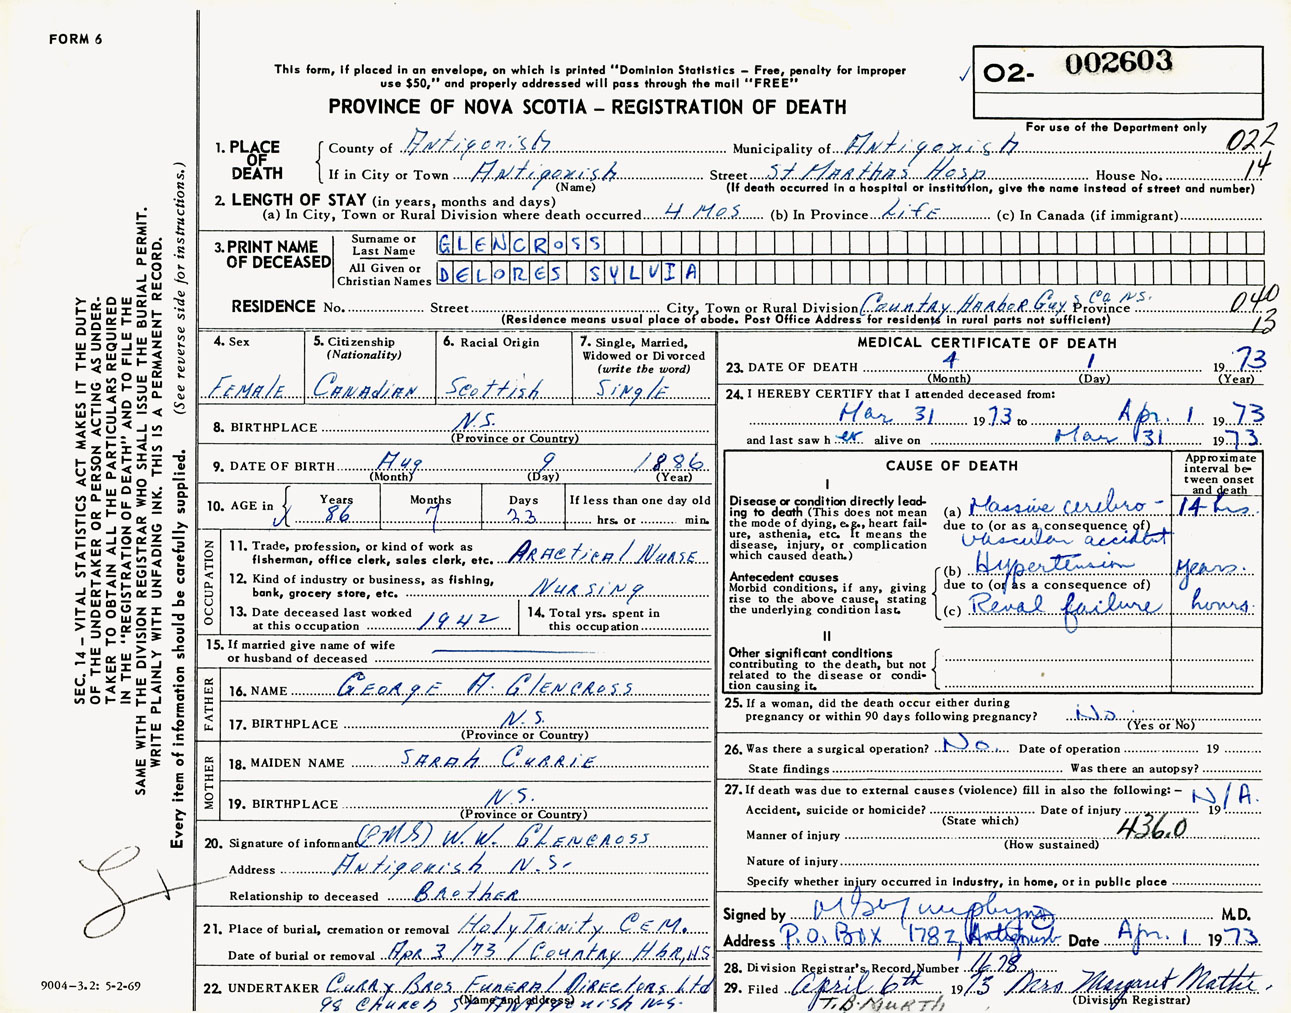 FORM 6
This form, if placed in an envelope, on which is printed "Dominion Statistics – Free, penalty for improper
use $50," and properly addressed will pass through the mail "FREE"
PROVINCE OF NOVA SCOTIA – REGISTRATION OF DEATH
02- 002603
For use of the Department only
022
14
SEC. 14 – VITAL STATISTICS ACT MAKES IT THE DUTY
OF THE UNDERTAKER OR PERSON ACTING AS UNDER-
TAKER TO OBTAIN ALL THE PARTICULARS REQUIRED
IN THE "REGISTRATION OF DEATH" AND TO FILE THE
SAME WITH THE DIVISION REGISTRAR WHO SHALL ISSUE THE BURIAL PERMIT.
WRITE PLAINLY WITH UNFADING INK. THIS IS A PERMANENT RECORD.
Every item of information should be carefully supplied. (See reverse side for instructions.)
1. PLACE OF DEATH
County of Antigonish Municipality of Antigonish
If in City or Town Antigonish Street St Marthas Hosp House No.
(Name) (If death occurred in a hospital or institution, give the name instead of street and number)
2. LENGTH OF STAY (in years, months and days)
(a) In City, Town or Rural Division where death occurred 4 MOS (b) In Province LIFE (c) In Canada (if immigrant)
3. PRINT NAME OF DECEASED
Surname or Last Name GLENCROSS
All Given or Christian Names DELORES SYLVIA
RESIDENCE No. Street City, Town or Rural Division Country Harbor Guys Co NS. Province
040
13
(Residence means usual place of abode. Post Office Address for residents in rural parts not sufficient)
4. Sex
FEMALE
5. Citizenship
(Nationality)
CANADIAN
6. Racial Origin
Scottish
7. Single, Married,
Widowed or Divorced
(write the word)
Single
8. BIRTHPLACE N.S.
(Province or Country)
9. DATE OF BIRTH Aug 9 1886
(Month) (Day) (Year)
10. AGE in Years 86 Months 7 Days 23 If less than one day old
hrs. or min.
OCCUPATION
11. Trade, profession, or kind of work as
fisherman, office clerk, sales clerk, etc. PRACTICAL NURSE
12. Kind of industry or business, as fishing,
bank, grocery store, etc. NURSING
13. Date deceased last worked
at this occupation 1942
14. Total yrs. spent in
this occupation
15. If married give name of wife
or husband of deceased
FATHER
16. NAME GEORGE A. GLENCROSS
17. BIRTHPLACE N.S.
(Province or Country)
MOTHER
18. MAIDEN NAME SARAH CURRIE
19. BIRTHPLACE N.S.
(Province or Country)
20. Signature of informant W.W. GLENCROSS
Address Antigonish N.S.
Relationship to deceased BROTHER
21. Place of burial, cremation or removal Holy Trinity CEM.
Date of burial or removal Apr 3/73 / Country Hbr, N.S.
22. UNDERTAKER CURRY BROS FUNERAL DIRECTORS Ltd
(Name and address)
98 CHURCH St ANTIGONISH N.S.
9004-3.2: 5-2-69
MEDICAL CERTIFICATE OF DEATH
23. DATE OF DEATH 4 1 1973
(Month) (Day) (Year)
24. I HEREBY CERTIFY that I attended deceased from:
Mar 31 1973 to Apr. 1 1973
and last saw h er alive on Mar 31 1973.
CAUSE OF DEATH
Approximate
interval be-
tween onset
and death
I
Disease or condition directly lead-
ing to death (This does not mean
the mode of dying, e.g., heart fail-
ure, asthenia, etc. It means the
disease, injury, or complication
which caused death.)
(a) Massive cerebro- 14 hrs.
due to (or as a consequence of)
vascular accident
Antecedent causes
Morbid conditions, if any, giving
rise to the above cause, stating
the underlying condition last.
(b) Hypertension years.
due to (or as a consequence of)
(c) Renal failure hours.
II
Other significant conditions
contributing to the death, but not
related to the disease or condi-
tion causing it.
25. If a woman, did the death occur either during
pregnancy or within 90 days following pregnancy? No.
(Yes or No)
26. Was there a surgical operation? No. Date of operation 19
State findings Was there an autopsy?
27. If death was due to external causes (violence) fill in also the following:– N/A.
Accident, suicide or homicide? Date of injury 19
(State which)
Manner of injury 436.0
(How sustained)
Nature of injury
Specify whether injury occurred in industry, in home, or in public place
Signed by M.D.
Address P.O. BOX 1782, Antigonish Date Apr. 1 1973
28. Division Registrar's Record Number 1678
29. Filed April 6th 1973 Mrs Margaret
(Division Registrar)